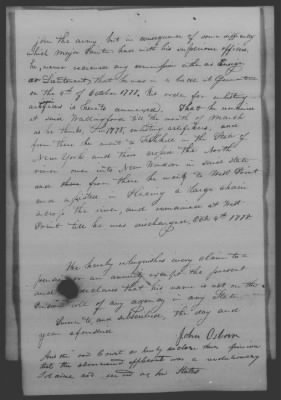 join the army but in consequence of some difficulty
which Major Painter had with his superiour officers,
he never received any commission either as Ensign
or Lieutenant, that he was in a battle at
on the 4th of October 1777, his order for enlisting
artificers is hereto annexed. That he continued
at said Wallingford till the month of March
as he thinks, 1778, enlisting artificers, and
from there he went to Fishkill in the State of
New York and then crossed the North
river over into New Windsor in said state
and then from there he went to West Point
and assisted in placing a large chain
across the river, and remained at West
Point till he was discharged, Oct 4th 1778
He hereby relinquishes every claim to a
pension or an annuity except the present
and declares that his name is not on the
roll of any agency in any State.
Sworn to, and subscribed, the day and
year aforesaid
John Osborn
And the said Court do hereby declare their opinion
that the above named applicant was a revolutionary
soldier and served as he states